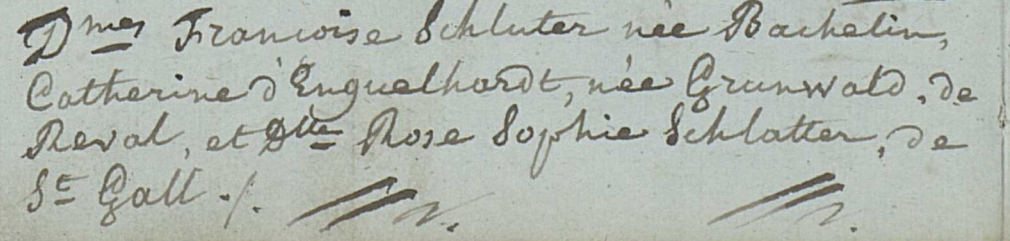 Dmes Francoise Schluter née Bachelin,
Catherine d'Enguelhardt, née Grunwald, de
Reval, et Dlle Rose Sophie Schlatter, de
St Gall ./.